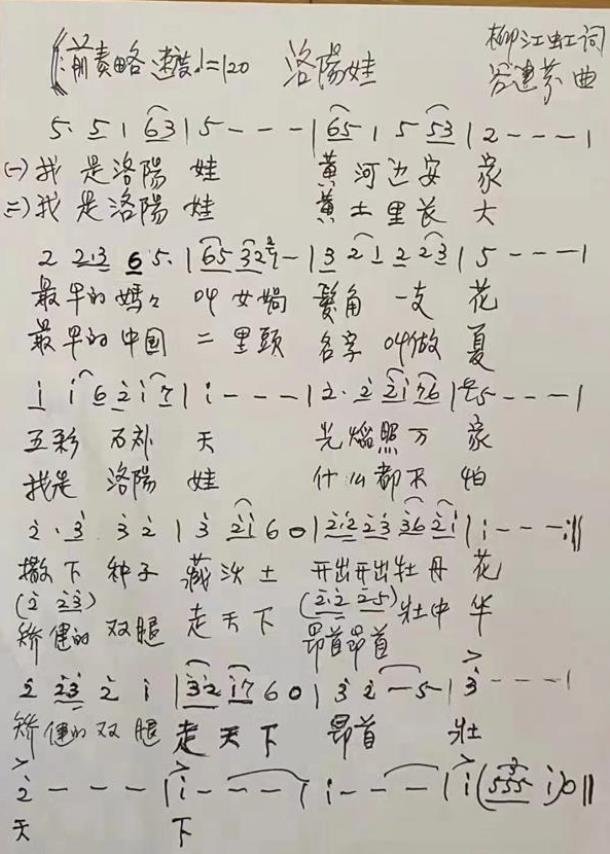 前奏略 速度♩=120 洛陽娃 柳江虹词
谷建芬 曲
5· 5 1 63 | 5 - - - | 65 1 5 53 | 2 - - - |
(一)我 是洛陽 娃 黄河边安 家
(二)我 是洛陽 娃 黄土里长 大
2 2·3 6 5· | 65 32 - | 3 2 1 2 23 | 5 - - - |
最早的媽々 叫女媧 鬓角一支 花
最早的中国 二里頭 名字叫做 夏
i i 6 2 i 7 | i - - - | 2· 2 2i 76 | 5 - - - |
五彩 石补 天 光焰照万 家
我是 洛陽 娃 什么都不 怕
2· 3 3 2 | 3 2i 6 0 | 2·2 23 36 2i | i - - - :||
撒下 种子 藏沃土 开出开出牡丹 花
(2 23) (2·2 2·5)
矫健的 双腿 走天下 昂首昂首 壮中 华
2 23 2 i | 32 i7 6 0 | 3 2 - 5 - | 3 - - - |
矫健的双腿 走天下 昂首 壮
2 - - - | i - - - | i - - - | i (555 i) 0 ||
天 下